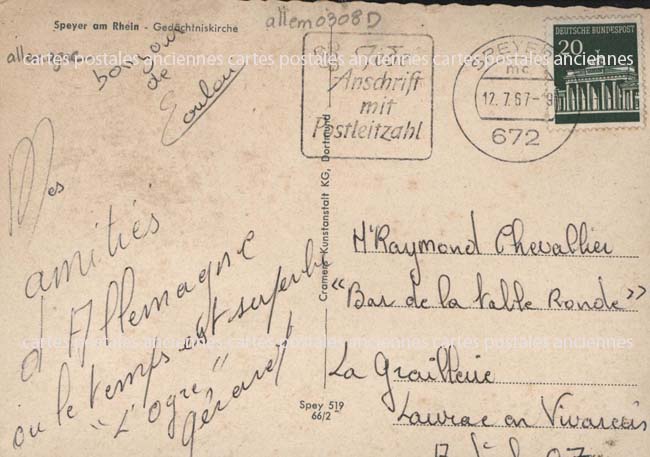 Speyer am Rhein - Gedächtniskirche
allem0308D
allemagne
bonjour
de
Toulou
Mes
amitiés
d'Allemagne
où le temps est superbe
"L'ogre"
Gérard
Anschrift
mit
Postleitzahl
SPEYER
mc
12.7.67-9
672
DEUTSCHE BUNDESPOST
20
Cramers Kunstanstalt KG, Dortmund
Spey 519
66/2
Mr Raymond Chevallier
"Bar de la table Ronde"
La Grailterie
Laurac en Vivarais
cartes postales anciennes cartes postales anciennes cartes postales anciennes
cartes postales anciennes cartes postales anciennes cartes postales anciennes